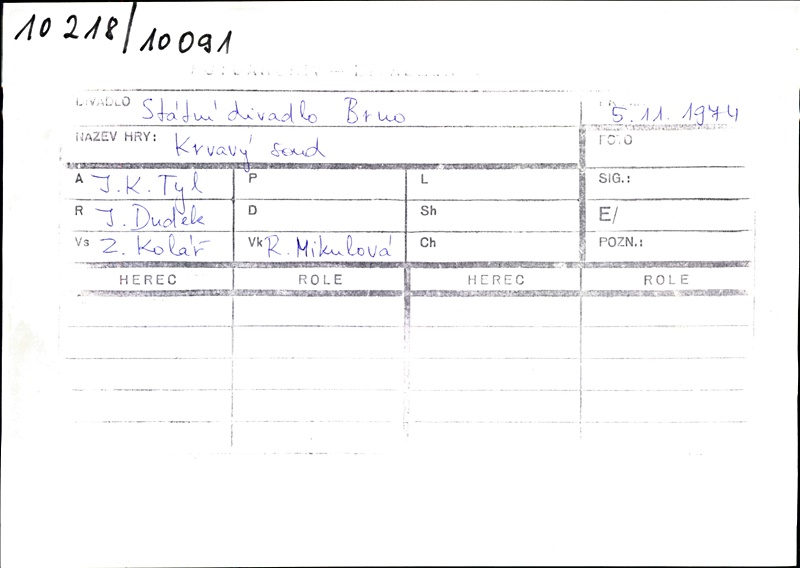 10 218/10091
DIVADLO Státní divadlo Brno 5. 11. 1974
NÁZEV HRY: Krvavý soud FOTO
A J. K. Tyl P L SIG.:
R J. Dudek D Sh E/
Vs Z. Kolář Vk R. Mikulová Ch POZN.:
HEREC ROLE HEREC ROLE